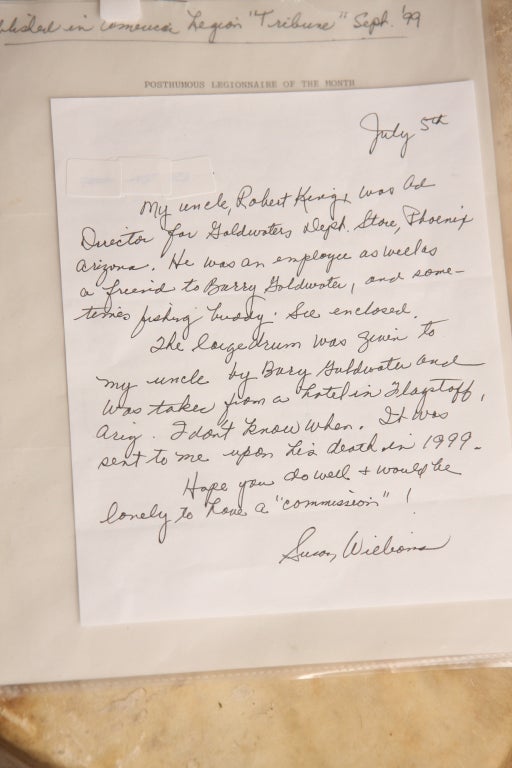 blished in American Legion "Tribune" Sept. '99
POSTHUMOUS LEGIONNAIRE OF THE MONTH
July 5th
My uncle, Robert King, was Ad
Director for Goldwaters Dept. Store, Phoenix
Arizona. He was an employee as well as
a friend to Barry Goldwater, and some-
times fishing buddy. See enclosed.
The large drum was given to
my uncle by Barry Goldwater and
was taken from a hotel in Flagstaff,
Ariz. I don't know when. It was
sent to me upon his death in 1999.
Hope you do well & would be
lonely to have a "commission"!
Susan Williams